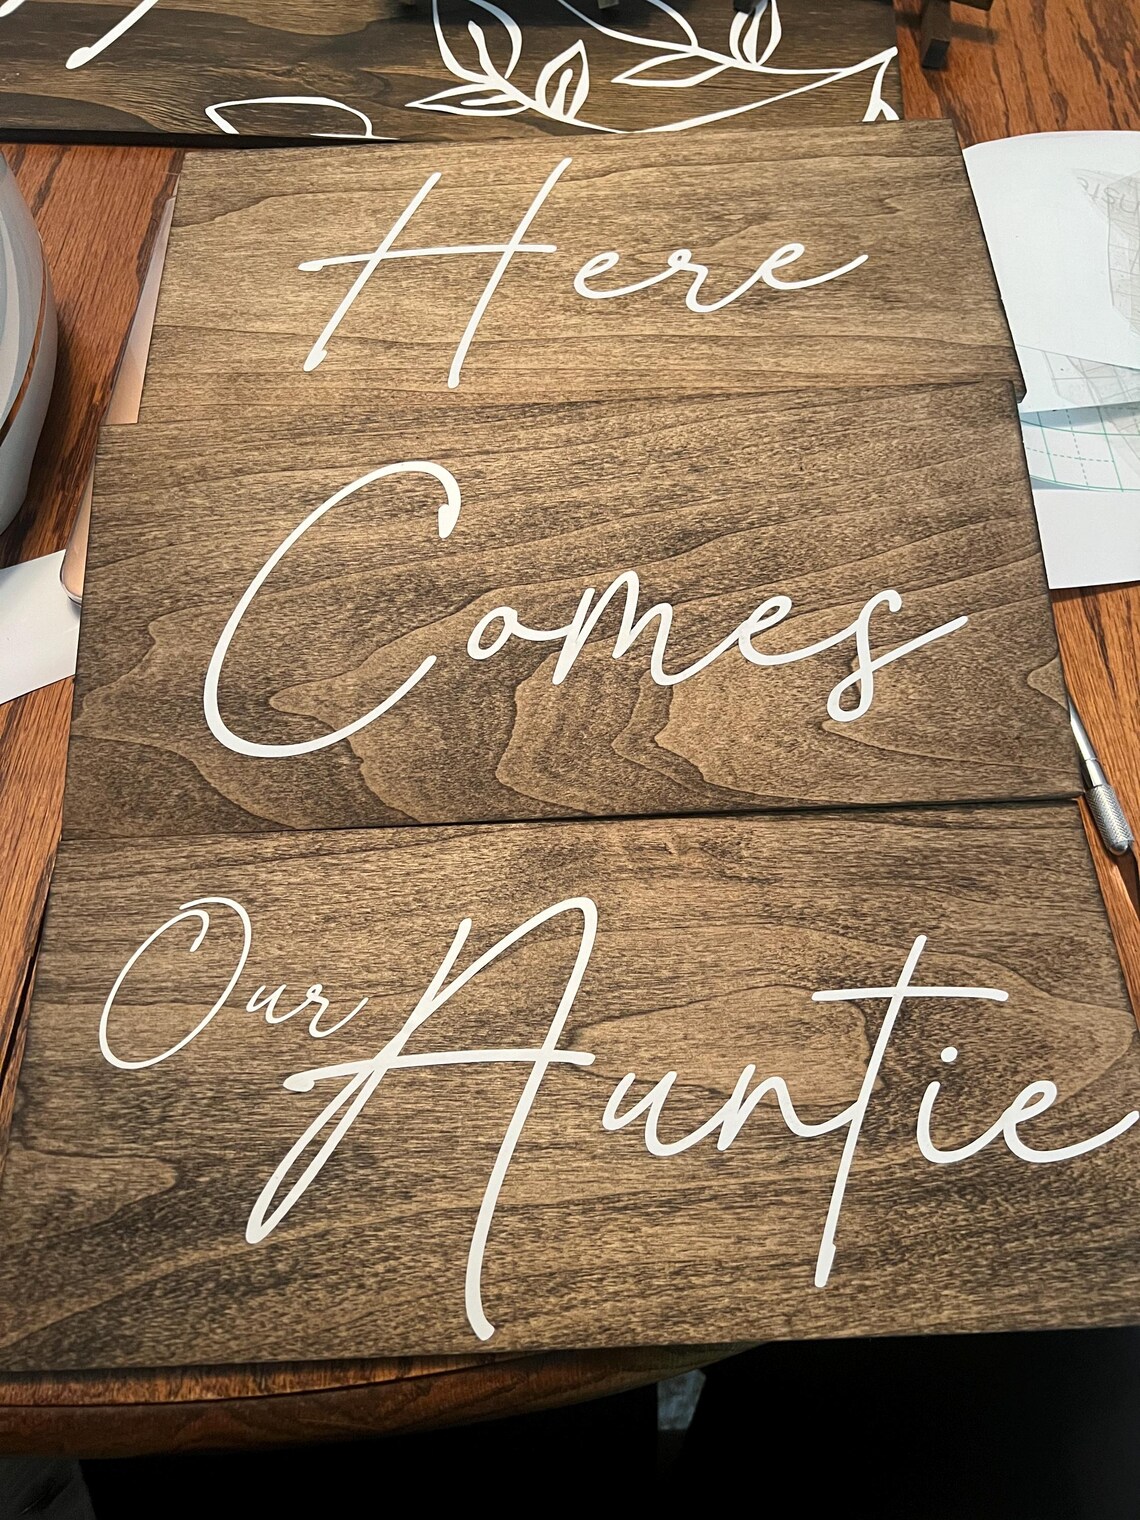 Here
Comes
Our Auntie